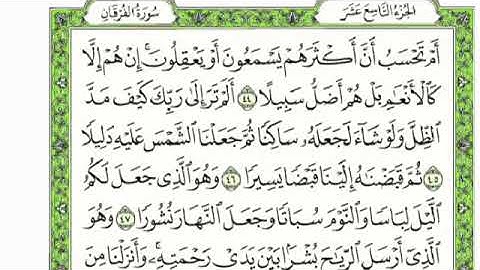 الجزء التاسع عشر
سورة الفرقان
أَمْ تَحْسَبُ أَنَّ أَكْثَرَهُمْ يَسْمَعُونَ أَوْ يَعْقِلُونَ ۚ إِنْ هُمْ إِلَّا
كَالْأَنْعَٰمِ بَلْ هُمْ أَضَلُّ سَبِيلًا ٤٤ أَلَمْ تَرَ إِلَىٰ رَبِّكَ كَيْفَ مَدَّ
الظِّلَّ وَلَوْ شَاءَ لَجَعَلَهُۥ سَاكِنًا ثُمَّ جَعَلْنَا الشَّمْسَ عَلَيْهِ دَلِيلًا
٤٥ ثُمَّ قَبَضْنَٰهُ إِلَيْنَا قَبْضًا يَسِيرًا ٤٦ وَهُوَ الَّذِي جَعَلَ لَكُمُ
الَّيْلَ لِبَاسًا وَالنَّوْمَ سُبَاتًا وَجَعَلَ النَّهَارَ نُشُورًا ٤٧ وَهُوَ
الَّذِي أَرْسَلَ الرِّيَٰحَ بُشْرًا بَيْنَ يَدَيْ رَحْمَتِهِۦ ۚ وَأَنْزَلْنَا مِنَ